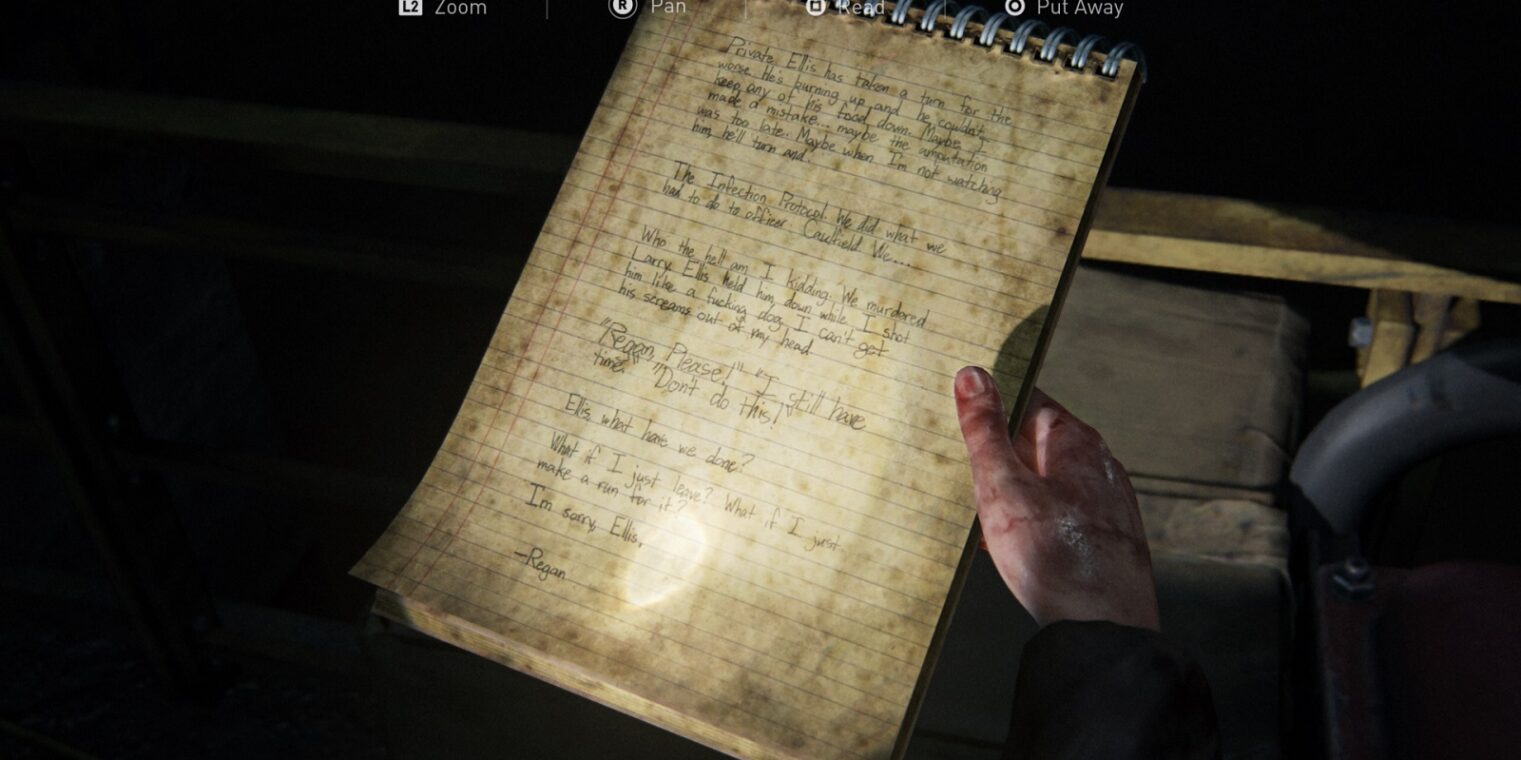 L2 Zoom
R Pan
Read
Put Away
Private Ellis has taken a turn for the
worse. He's burning up and he couldn't
keep any of his food down. Maybe I
made a mistake... maybe the amputation
was too late. Maybe when I'm not watching
him, he'll turn and.
The Infection Protocol. We did what we
had to do to officer Caulfield. We....
Who the hell am I kidding. We murdered
Larry. Ellis held him down while I shot
him like a fucking dog. I can't get
his screams out of my head
"Regan, Please!" "I still have
time." "Don't do this!"
Ellis, what have we done?
What if I just leave? What if I just
make a run for it?
I'm sorry, Ellis,
-Regan